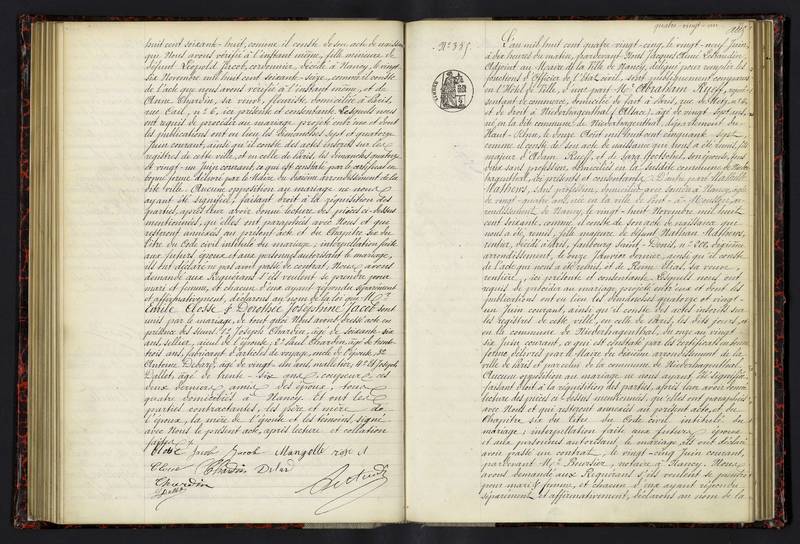 huit cent soixante-huit, comme il conste de son acte de naissance
que Nous avons vérifié à l'instant même, fille mineure de
défunt Léopold Jacob, cordonnier, décédé à Nancy, le vingt
six Novembre mil huit cent soixante-seize, comme il conste
de l'acte que nous avons vérifié à l'instant même, et de
Anne Chardin, sa veuve, fleuriste, domiciliée à Paris,
rue Cail, nº 6, ici présente et consentante. Lesquels nous
ont requis de procéder au mariage projeté entr'eux et dont
les publications ont eu lieu les Dimanches sept et quatorze
Juin courant, ainsi qu'il conste des actes inscrits sur les
registres de cette ville, et en celle de Paris, les dimanches quatorze
et vingt-un Juin courant, ce qui est constaté par le certificat en
bonne forme délivré par le Maire du dixième arrondissement de la
dite ville. Aucune opposition au mariage ne nous
ayant été signifiée, faisant droit à la réquisition des
parties, après leur avoir donné lecture des pièces ci-dessus
mentionnées, qu'elles ont paraphées avec Nous et que
resteront annexées au présent acte et du Chapitre six du
titre du Code civil intitulé du mariage; interpellation faite
aux futurs époux et aux personnes autorisant le mariage,
ils ont déclaré ne pas avoir passé de contrat, Nous avons
demandé aux Requérants s'ils veulent se prendre pour
mari et femme, et chacun d'eux ayant répondu séparément
et affirmativement, déclarons au nom de la loi que Mr
Emile Closse & Dorothée Joséphine Jacob sont
unis par le mariage, de tout quoi Nous avons dressé acte en
présence des Sieurs 1º Joseph Chardin, âgé de soixante-six
ans, sellier, aïeul de l'épouse, 2º Paul Chardin, âgé de trente
trois ans, fabricant d'articles de voyage, oncle de l'épouse, 3º
Antoine Detraz, âgé de vingt-un ans, malletier, 4º et Joseph
Dallet, âgé de trente-six ans, coupeur, ces
deux derniers amis des époux, tous
quatre domiciliés à Nancy. Et ont les
parties contractantes, les père et mère de
l'époux, la mère de l'épouse et les témoins, signé
avec Nous le présent acte, après lecture et collation
faites
Closse Jacob Mangolle
Closse Chardin
Chardin
Dallet
quatre-vingt-un
Nº 335.
L'an mil huit cent quatre vingt-cinq, le vingt-neuf Juin,
à dix heures du matin, pardevant Nous
Adjoint au Maire de la Ville de Nancy, délégué pour remplir les
fonctions d'Officier de l'État civil, sont publiquement comparus
en l'Hôtel de Ville, d'une part Mr Abraham Rueff, représ
entant de commerce, domicilié de fait à Paris, rue de Metz, nº
et de droit à Niederhagenthal (Alsace), âgé de vingt-sept ans,
né en la dite commune de Niederhagenthal, département du
Haut-Rhin, le douze Août mil huit cent cinquante-sept
comme il conste de son acte de naissance qui nous a été remis, fils
majeur d'Adam Rueff, et de Sara son épouse, tous
deux sans profession, domiciliés en la susdite commune de Nieder
hagenthal, ici présents et consentants. D'autre part Mathilde
Mathews, sans profession, domiciliée avec sa mère à Nancy, âgée
de vingt-quatre ans, née en la ville de Pont-à-Mousson, ar
rondissement de Nancy, le vingt-huit Novembre mil huit
cent soixante, comme il conste de son acte de naissance qui
nous a été remis, fille majeure de défunt Nathan Mathews,
rentier, décédé à Paris, faubourg Saint-Denis, nº 222, dixième
arrondissement, le onze Janvier dernier, ainsi qu'il conste
de l'acte qui nous a été remis, et de Reine Elias, sa veuve,
rentière, ici présente et consentante. Lesquels nous ont
requis de procéder au mariage projeté entr'eux et dont les
publications ont eu lieu les dimanches quatorze et vingt-
un Juin courant, ainsi qu'il conste des actes inscrits sur
les registres de cette ville, en celle de Paris, les dits jours, et
en la commune de Niederhagenthal,
six Juin courant, ce qui est constaté par les certificats en bonne
forme délivrés par le Maire du dixième arrondissement de la
ville de Paris et par celui de la commune de Niederhagenthal.
Aucune opposition au mariage ne nous ayant été signifiée,
faisant droit à la réquisition des parties, après leur avoir donné
lecture des pièces ci-dessus mentionnées, qu'elles ont paraphées
avec Nous et qui resteront annexées au présent acte, et du
Chapitre six du titre du Code civil intitulé du
mariage; interpellation faite aux futurs époux
et aux personnes autorisant le mariage, ils ont déclaré
avoir passé un contrat, le vingt-cinq Juin courant,
pardevant Mr Boursier, notaire à Nancy, Nous
avons demandé aux Requérants s'ils veulent se prendre
pour mari & femme, et chacun d'eux ayant répondu
séparément et affirmativement, déclarons au nom de la